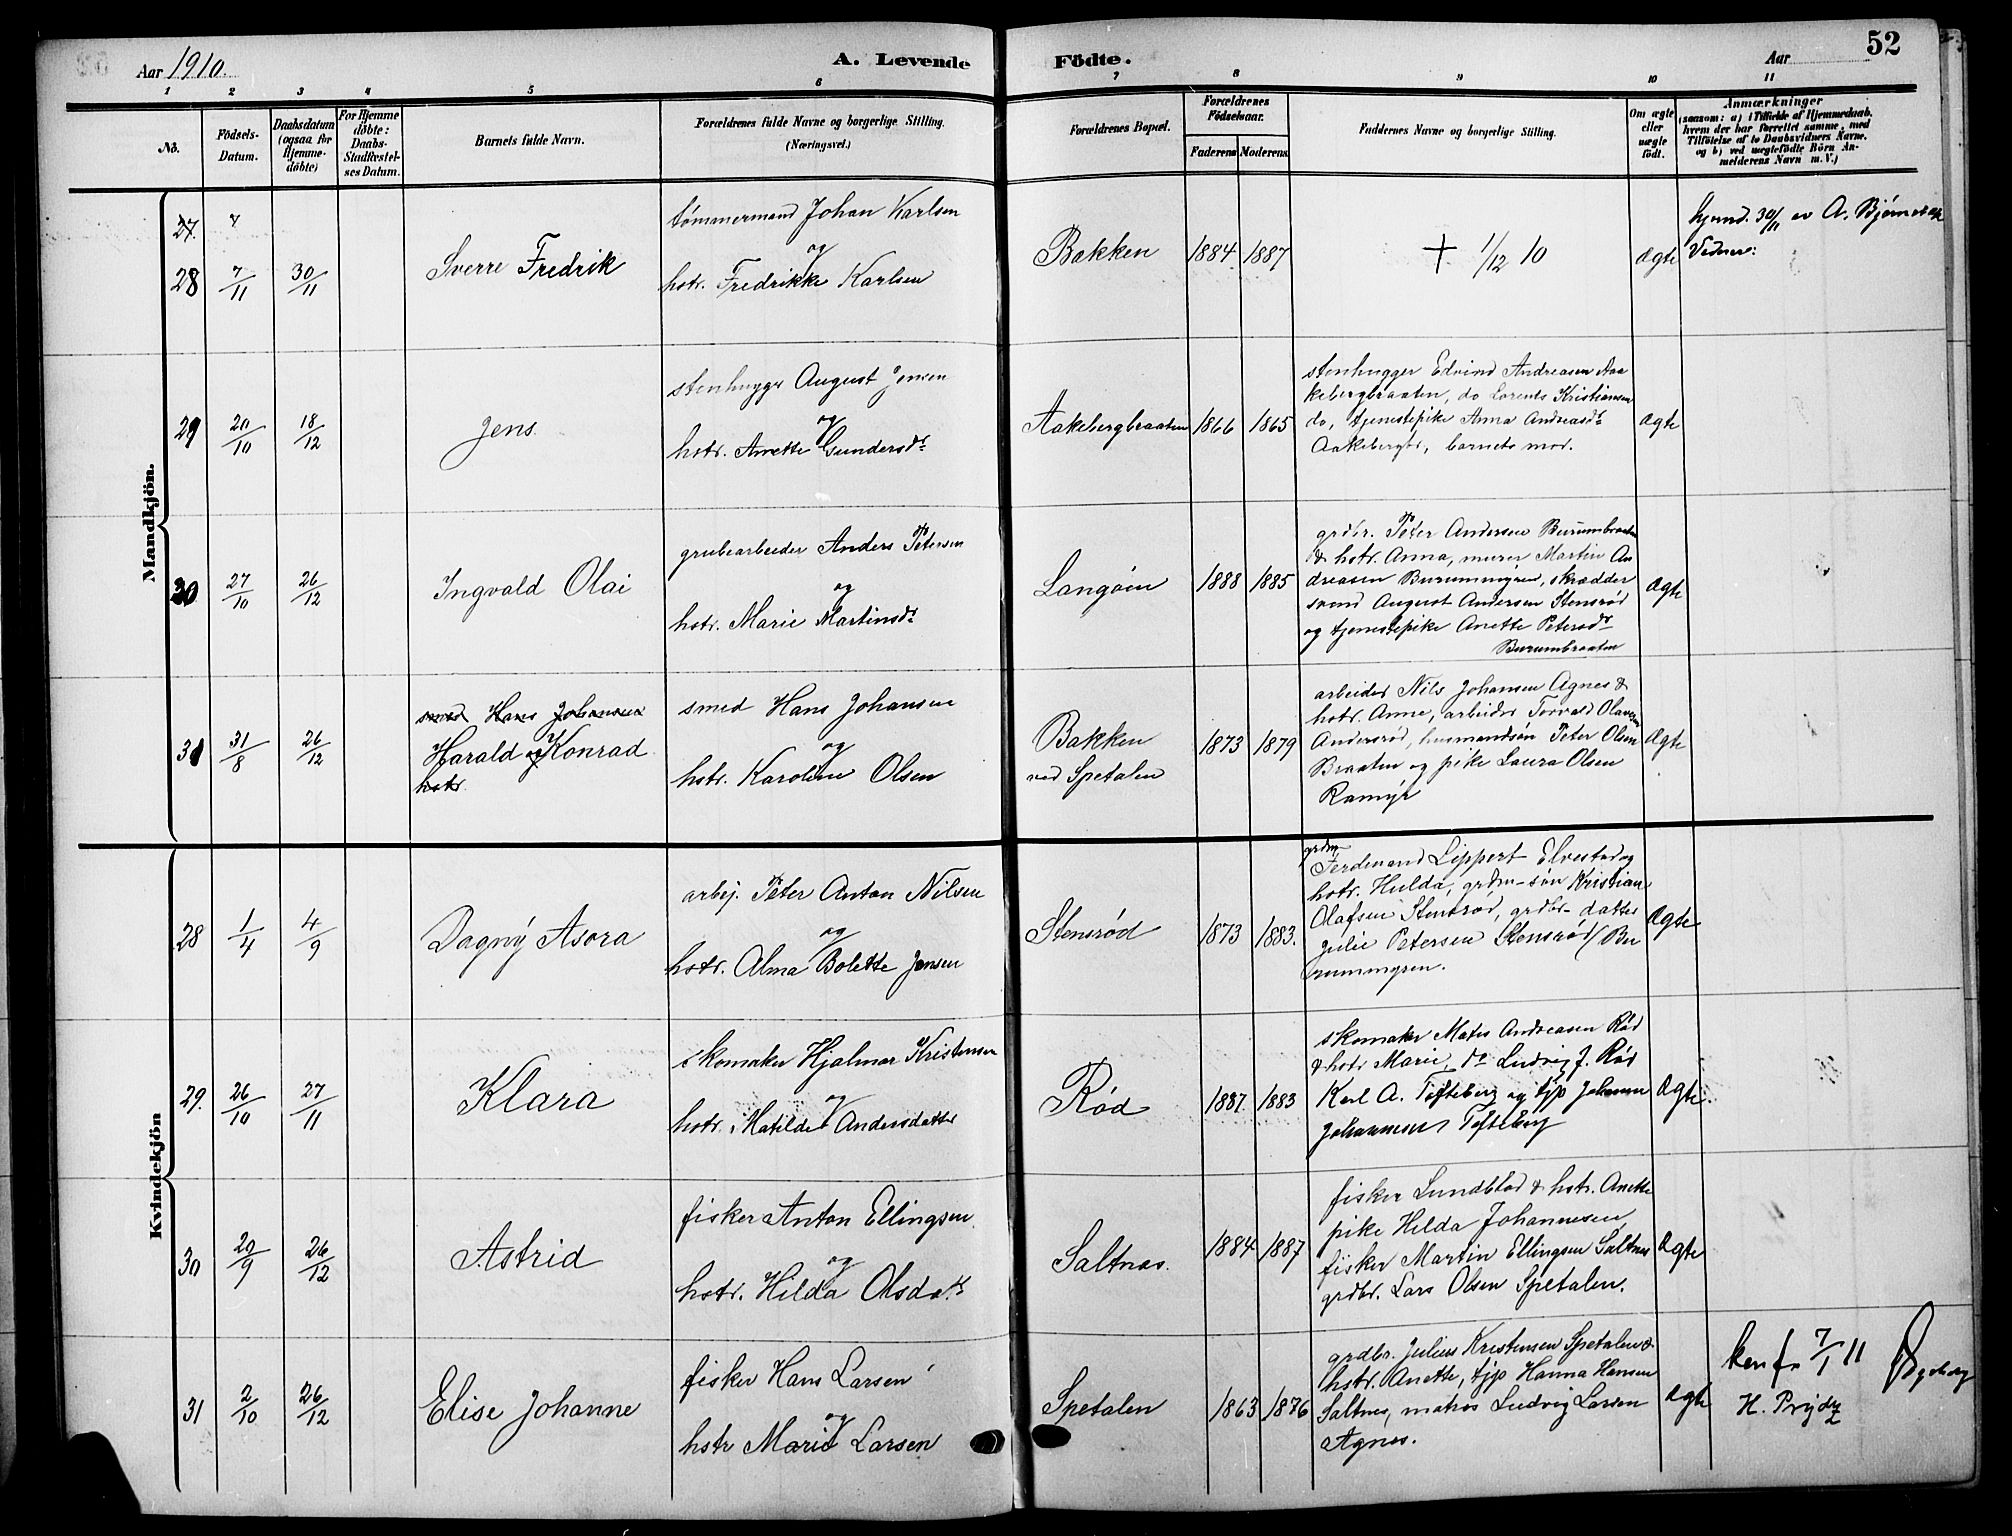 Aar 1910.
A. Levende Födte.
Aar
52
1 2 3 4 5 6 7 8 9 10 11
No.
Födsels-
Datum.
Daabsdatum
(ogsaa for
Hjemme-
döbte)
For Hjemme
döbte:
Daabs-
Stadfæstel-
ses Datum.
Barnets fulde Navn.
Forældrenes fulde Navne og borgerlige Stilling.
(Næringsvei.)
Forældrenes Bopæl.
Forældrenes
Födselsaar.
Faderens Moderens
Faddernes Navne og borgerlige Stilling.
Om ægte
eller
uægte
født.
Anmærkninger
(saasom: a) i Tilfælde af Hjemmedaab,
hvem der har forrettet samme, med
Tilföielse af to Daabsvidners Navne,
og b) ved uægtefödte Börn An-
melderens Navn m. V.)
Mandkjön.
27. 7
28 7/11 30/11
Sverre Fredrik
tømmermand Johan Karlsen
og
hstr. Fredrikke Karlsen
Bakken 1884 1887
+ 1/12 10
ægte
hjemd. 30/11 av A. Bjørnebæk
Vidner:
29 20/10 18/12
Jens
stenhugger August Jensen
og
hstr. Anette Gundersdt
Aakebergbraaten 1866 1865
stenhugger Edvind Andreasen Aa
kebergbraaten, do Lorents Kristiansen
do, tjenestepike Anna Andreasdt
Aakeberget, barnets mor.
ægte
30 27/10 26/12
Ingvald Olai
grubearbeider Anders Petersen
og
hstr. Marie Martinsdt
Langøen 1888 1885
grdbr. Peter Andersen Burumbraaten
& hstr. Anna, murer Martin An
dreasen Burummyren, skrædder
svend August Andersen Stensrød
og tjenestepike Anette Petersdt
Burumbraaten
ægte
31 31/8 26/12
smed Hans Johansen
Harald og Konrad
hstr.
smed Hans Johansen
og
hstr. Karoline Olsen
Bakken
ved Spetalen
1873 1879
arbeider Nils Johansen Agnes &
hstr. Anne, arbeider Torvald Olavsen
Andersrød, husmandsøn Peter Olsen
Braaten og pike Laura Olsen
Ramyr
ægte
Kvindekjön
28 1/4 4/9
Dagny Asora
arbej. Peter Anton Nilsen
og
hstr. Alma Bolette Jensen
Stensrød 1873 1883.
grdm
Ferdinand Lippert Elvestad og
hstr. Hulda, grdm-søn Kristian
Olafsen Stensrød, grdbr-datter
Julie Petersen Stensrød/Bu
rummyren.
ægte
29. 26/10 27/11
Klara
skomaker Hjalmar Kristensen
og
hstr. Matilde Andersdatter
Rød 1887 1883
skomaker Mats Andreasen Rød
& hstr Marie, do Ludvig J. Rød
Karl A. Tofteberg og tjp Johanne
Johannesen Tofteberg
ægte.
30 20/9 26/12
Astrid
fisker Anton Ellingsen
og
hstr. Hilda Olsdatr
Saltnæs. 1884 1887
fisker Lundblad & hstr. Anette
pike Hilda Johannesen
fisker Martin Ellingsen Saltnæs
grdbr. Lars Olsen Spetalen.
ægte
31 2/10 26/12
Elise Johanne
fisker Hans Larsen
og
hstr Marie Larsen
Spetalen 1863 1876
grdbr. Julius Kristensen Spetalen &
hstr. Anette, tjp Hanna Hansen
Saltnes, matros Ludvig Larsen
Agnes.
ægte
konfr 7/1 11
H. Prydz